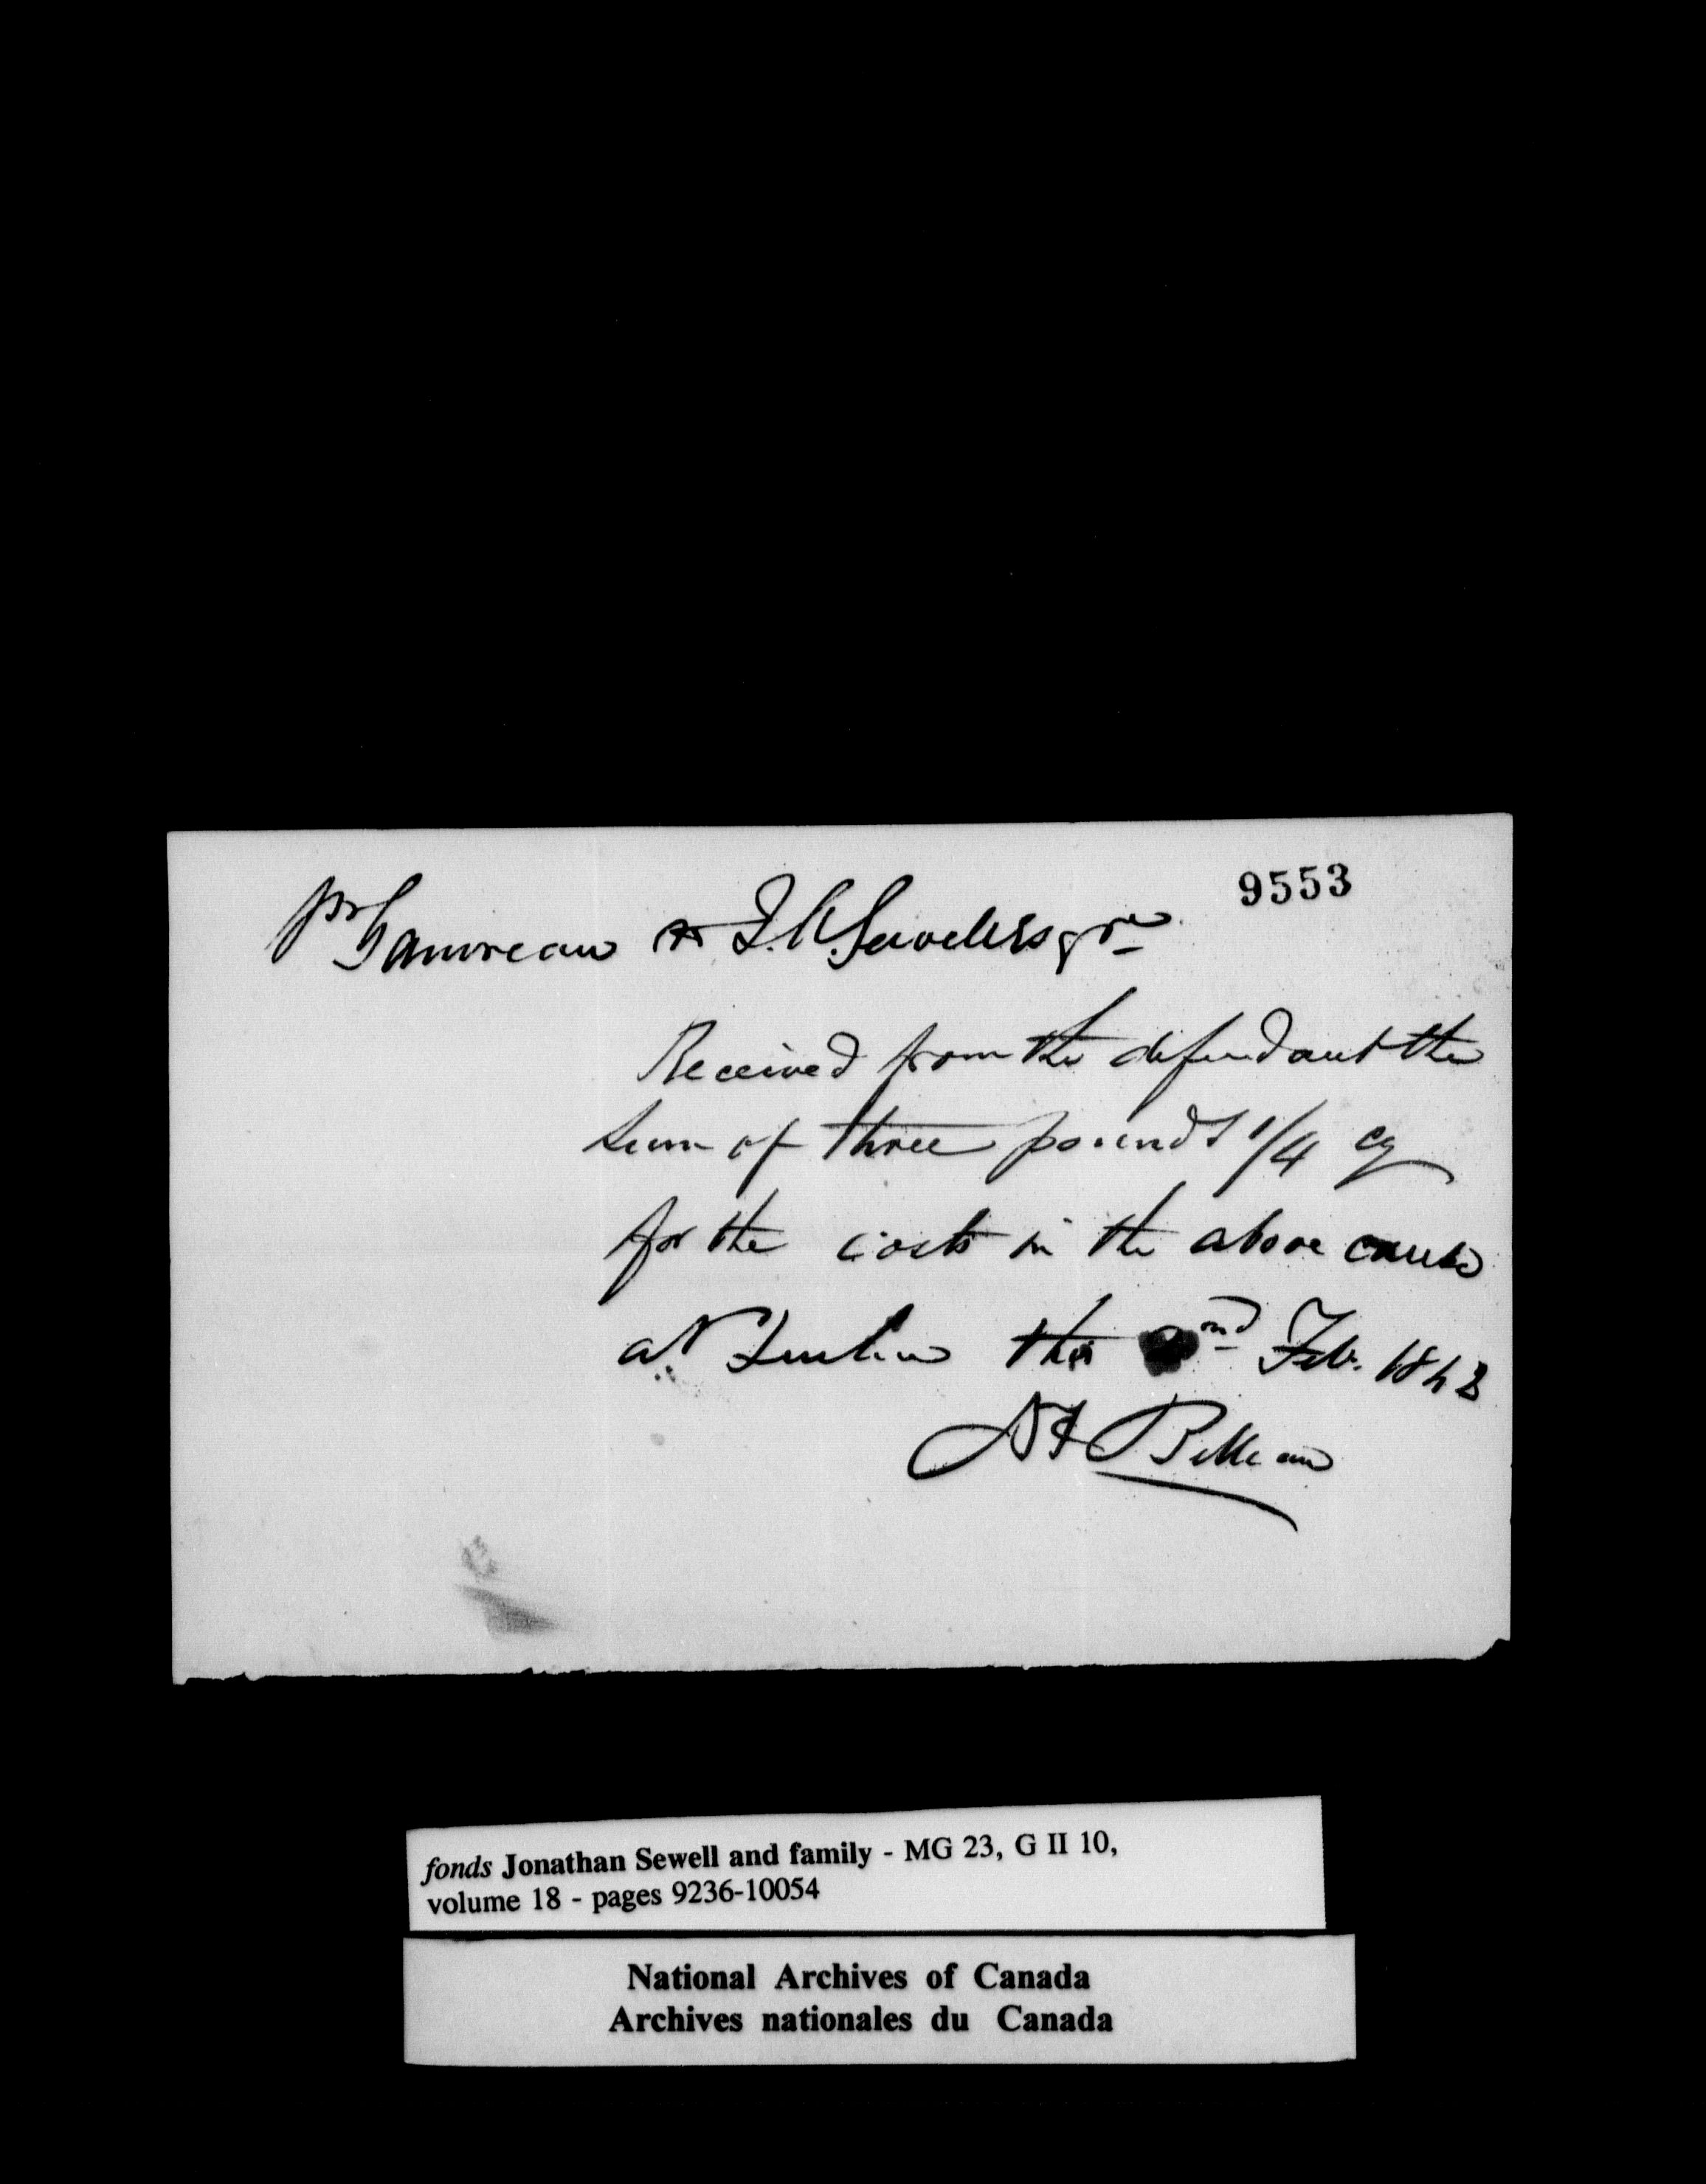 9553
Gauvreau vs J. A. Sewell Esqre
Received from the defendant the
sum of three pounds 1/4 cy
for the costs in the above cause
at Quebec this 2nd Feb. 1843
N F Belleau
fonds Jonathan Sewell and family - MG 23, G II 10,
volume 18 - pages 9236-10054
National Archives of Canada
Archives nationales du Canada